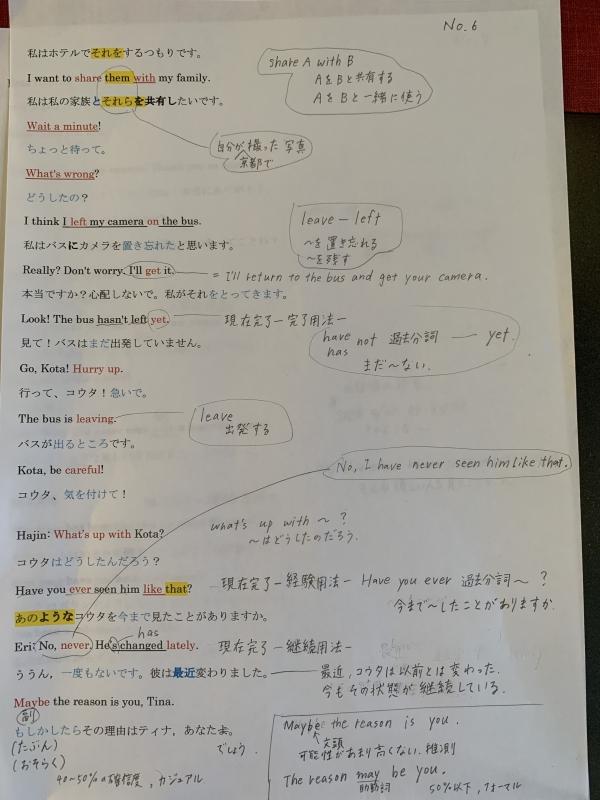 No.6
私はホテルでそれをするつもりです。
I want to share them with my family.
私は私の家族とそれらを共有したいです。
share A with B
AをBと共有する
AをBと一緒に使う
Wait a minute!
ちょっと待って。
自分が撮った写真
京都で
What's wrong?
どうしたの？
I think I left my camera on the bus.
私はバスにカメラを置き忘れたと思います。
leave - left
～を置き忘れる
～を残す
Really? Don't worry. I'll get it. = I'll return to the bus and get your camera.
本当ですか？心配しないで。私がそれをとってきます。
Look! The bus hasn't left yet. 現在完了－完了用法－
見て！バスはまだ出発していません。
have not 過去分詞 — yet.
has
まだ～ない.
Go, Kota! Hurry up.
行って、コウタ！急いで。
The bus is leaving.
バスが出るところです。
leave
出発する
Kota, be careful!
コウタ、気を付けて！
No, I have never seen him like that.
Hajin: What's up with Kota?
コウタはどうしたんだろう？
what's up with ～ ?
～はどうしたのだろう.
Have you ever seen him like that? 現在完了－経験用法－ Have you ever 過去分詞～ ?
あのようなコウタを今まで見たことがありますか。
今まで～したことがありますか
has
Eri: No, never. He's changed lately. 現在完了－継続用法－
ううん，一度もないです。彼は最近変わりました。
最近，コウタは以前とは変わった.
今もその状態が継続している.
Maybe the reason is you, Tina.
副
もしかしたらその理由はティナ，あなたよ。
(たぶん)
でしょう.
(おそらく)
40～50%の確信度，カジュアル
Maybe the reason is you.
文頭
可能性があまり高くない.推測
The reason may be you.
助動詞 50%以下，フォーマル